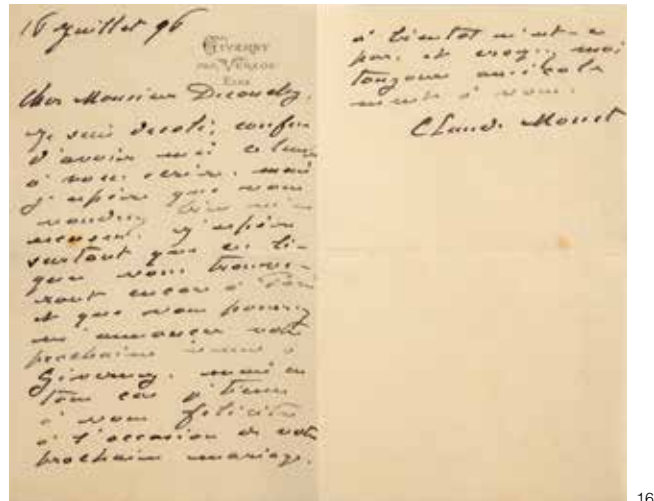 16 juillet 96
GIVERNY
PAR VERNON
EURE
Cher Monsieur Decouchy,
Je suis désolé, confus
d'avoir mis ce temps
à vous écrire, mais
j'espère que vous
voudrez bien m'en
excuser. J'espère
surtout que ces li-
gnes vous trouve-
ront encore à Paris
et que vous pourrez
m'annoncer votre
prochaine venue à
Giverny. mais en
tous cas je tiens
à vous féliciter
à l'occasion de votre
prochain mariage.
à bientôt n'est-ce
pas, et croyez moi
toujours amicale
ment à vous.
Claude Monet
16